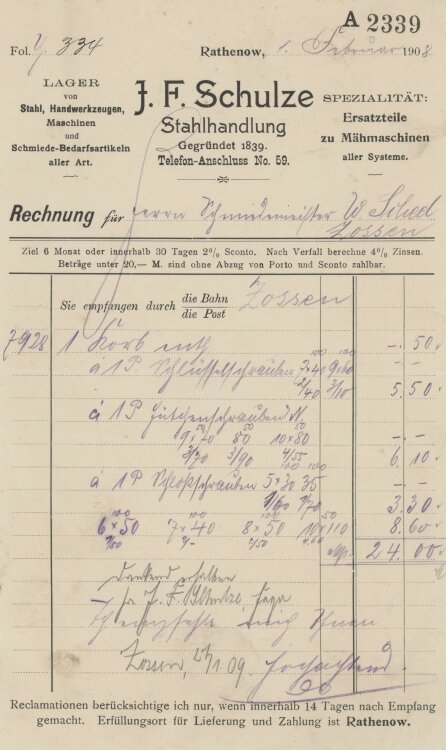 A 2339
Fol. 334
Rathenow, 1. Februar 1908
LAGER
von
Stahl, Handwerkzeugen,
Maschinen
und
Schmiede-Bedarfsartikeln
aller Art.
J. F. Schulze
Stahlhandlung
Gegründet 1839.
Telefon-Anschluss No. 59.
SPEZIALITÄT:
Ersatzteile
zu Mähmaschinen
aller Systeme.
Rechnung für Herrn Schmiedemeister W.
Zossen
Ziel 6 Monat oder innerhalb 30 Tagen 2% Sconto. Nach Verfall berechne 4% Zinsen.
Beträge unter 20.— M. sind ohne Abzug von Porto und Sconto zahlbar.
Sie empfangen durch die Bahn Zossen
die Post
7928 1 Korb enth. -.50
à 1 P Schlüsselschrauben 7×40 9×60 -.-
5.50
à 1 P -.-
9×70 80 10×80
3/70 3/90 4/55 6.10
à 1 P Schloßschrauben 5×30 35 -.-
3.30
6×50 7×40 8×50 10×110 8.60
24.00
Dankend erhalten
J. F. Schulze
Zossen, 1.09.
Hochachtend
Reclamationen berücksichtige ich nur, wenn innerhalb 14 Tagen nach Empfang
gemacht. Erfüllungsort für Lieferung und Zahlung ist Rathenow.